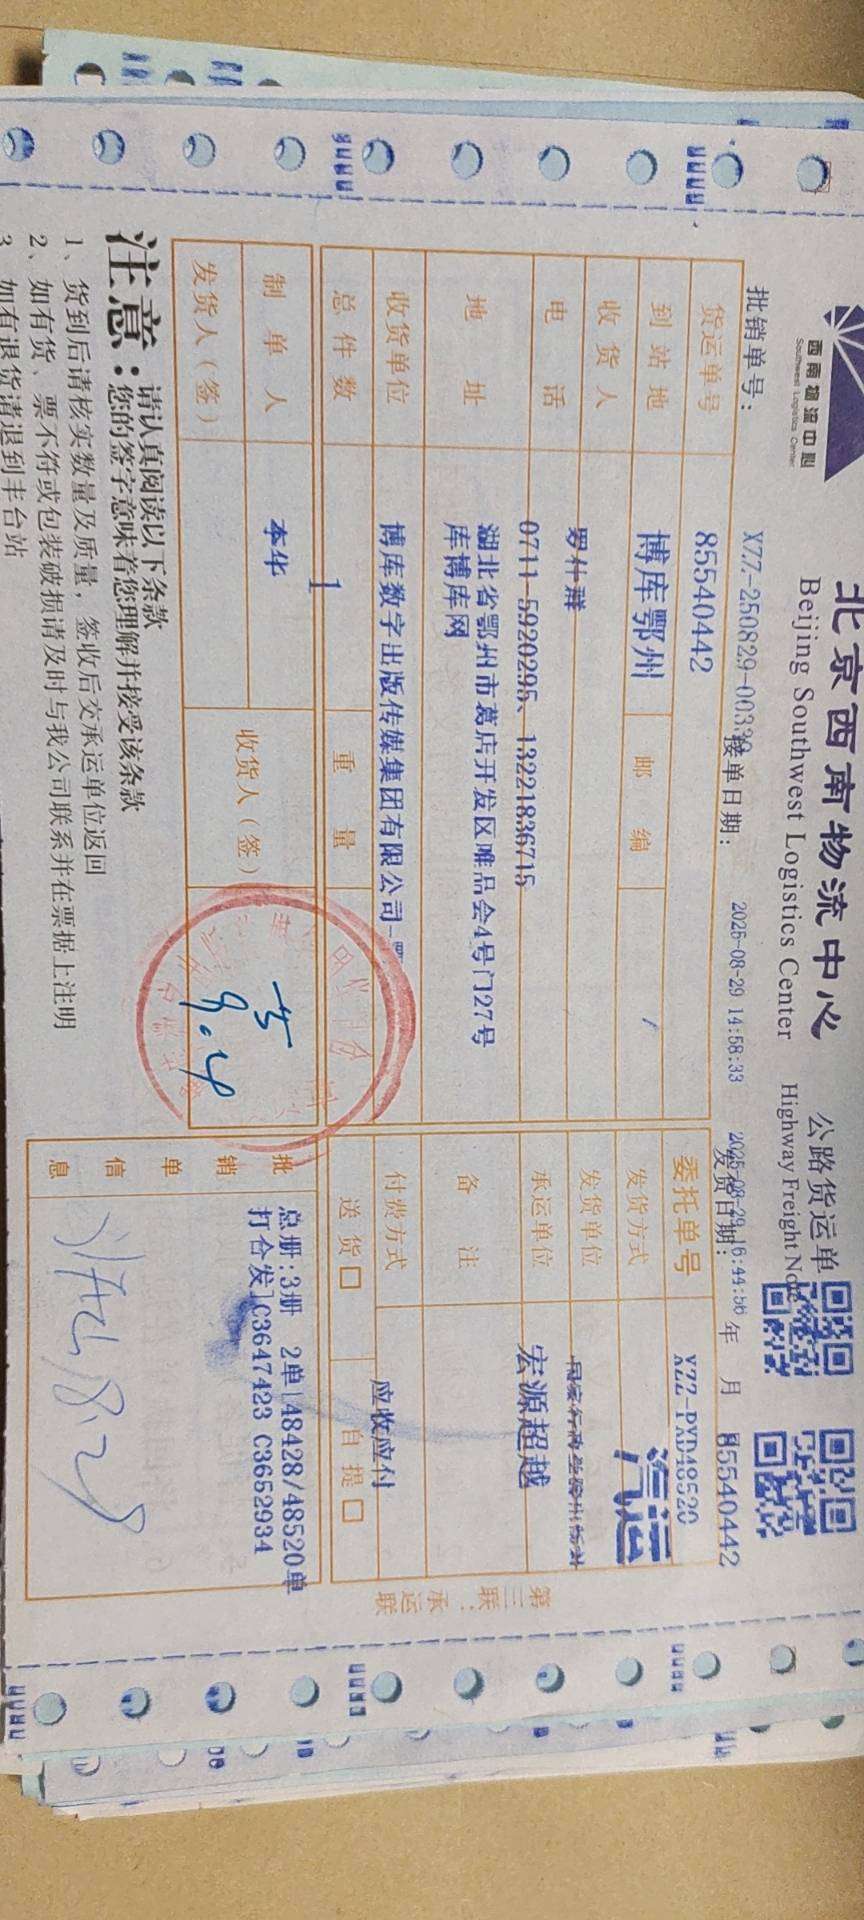 西南物流中心
Southwest Logistics Center
北京西南物流中心 公路货运单
Beijing Southwest Logistics Center Highway Freight Note
批销单号: XZZ-250829-00339 接单日期: 2025-08-29 14:58:33 发货日期: 2025-08-29 16:44:56 年 月 日 85540442
货运单号 85540442 委托单号 XZZ-PXD48520
到站地 博库鄂州 邮编 / 发货方式 汽运
收货人 发货单位
电话 0711-5920295、13221836715 承运单位 宏源超越
地址 湖北省鄂州市葛店开发区唯品会4号门27号
库博库网
备注
收货单位 博库数字出版传媒集团有限公司 付费方式 应收应付
总件数 1 重量 送货□ 自提□
制单人 本华 收货人(签)
发货人(签)
9.4
批销单信息 总册:3册 2单148428/48520单
打合发]C3647423 C3652934
第三联:承运联
注意: 请认真阅读以下条款
您的签字意味着您理解并接受该条款
1、货到后请核实数量及质量,签收后交承运单位返回
2、如有货、票不符或包装破损请及时与我公司联系并在票据上注明
3、如有退货请退到丰台站